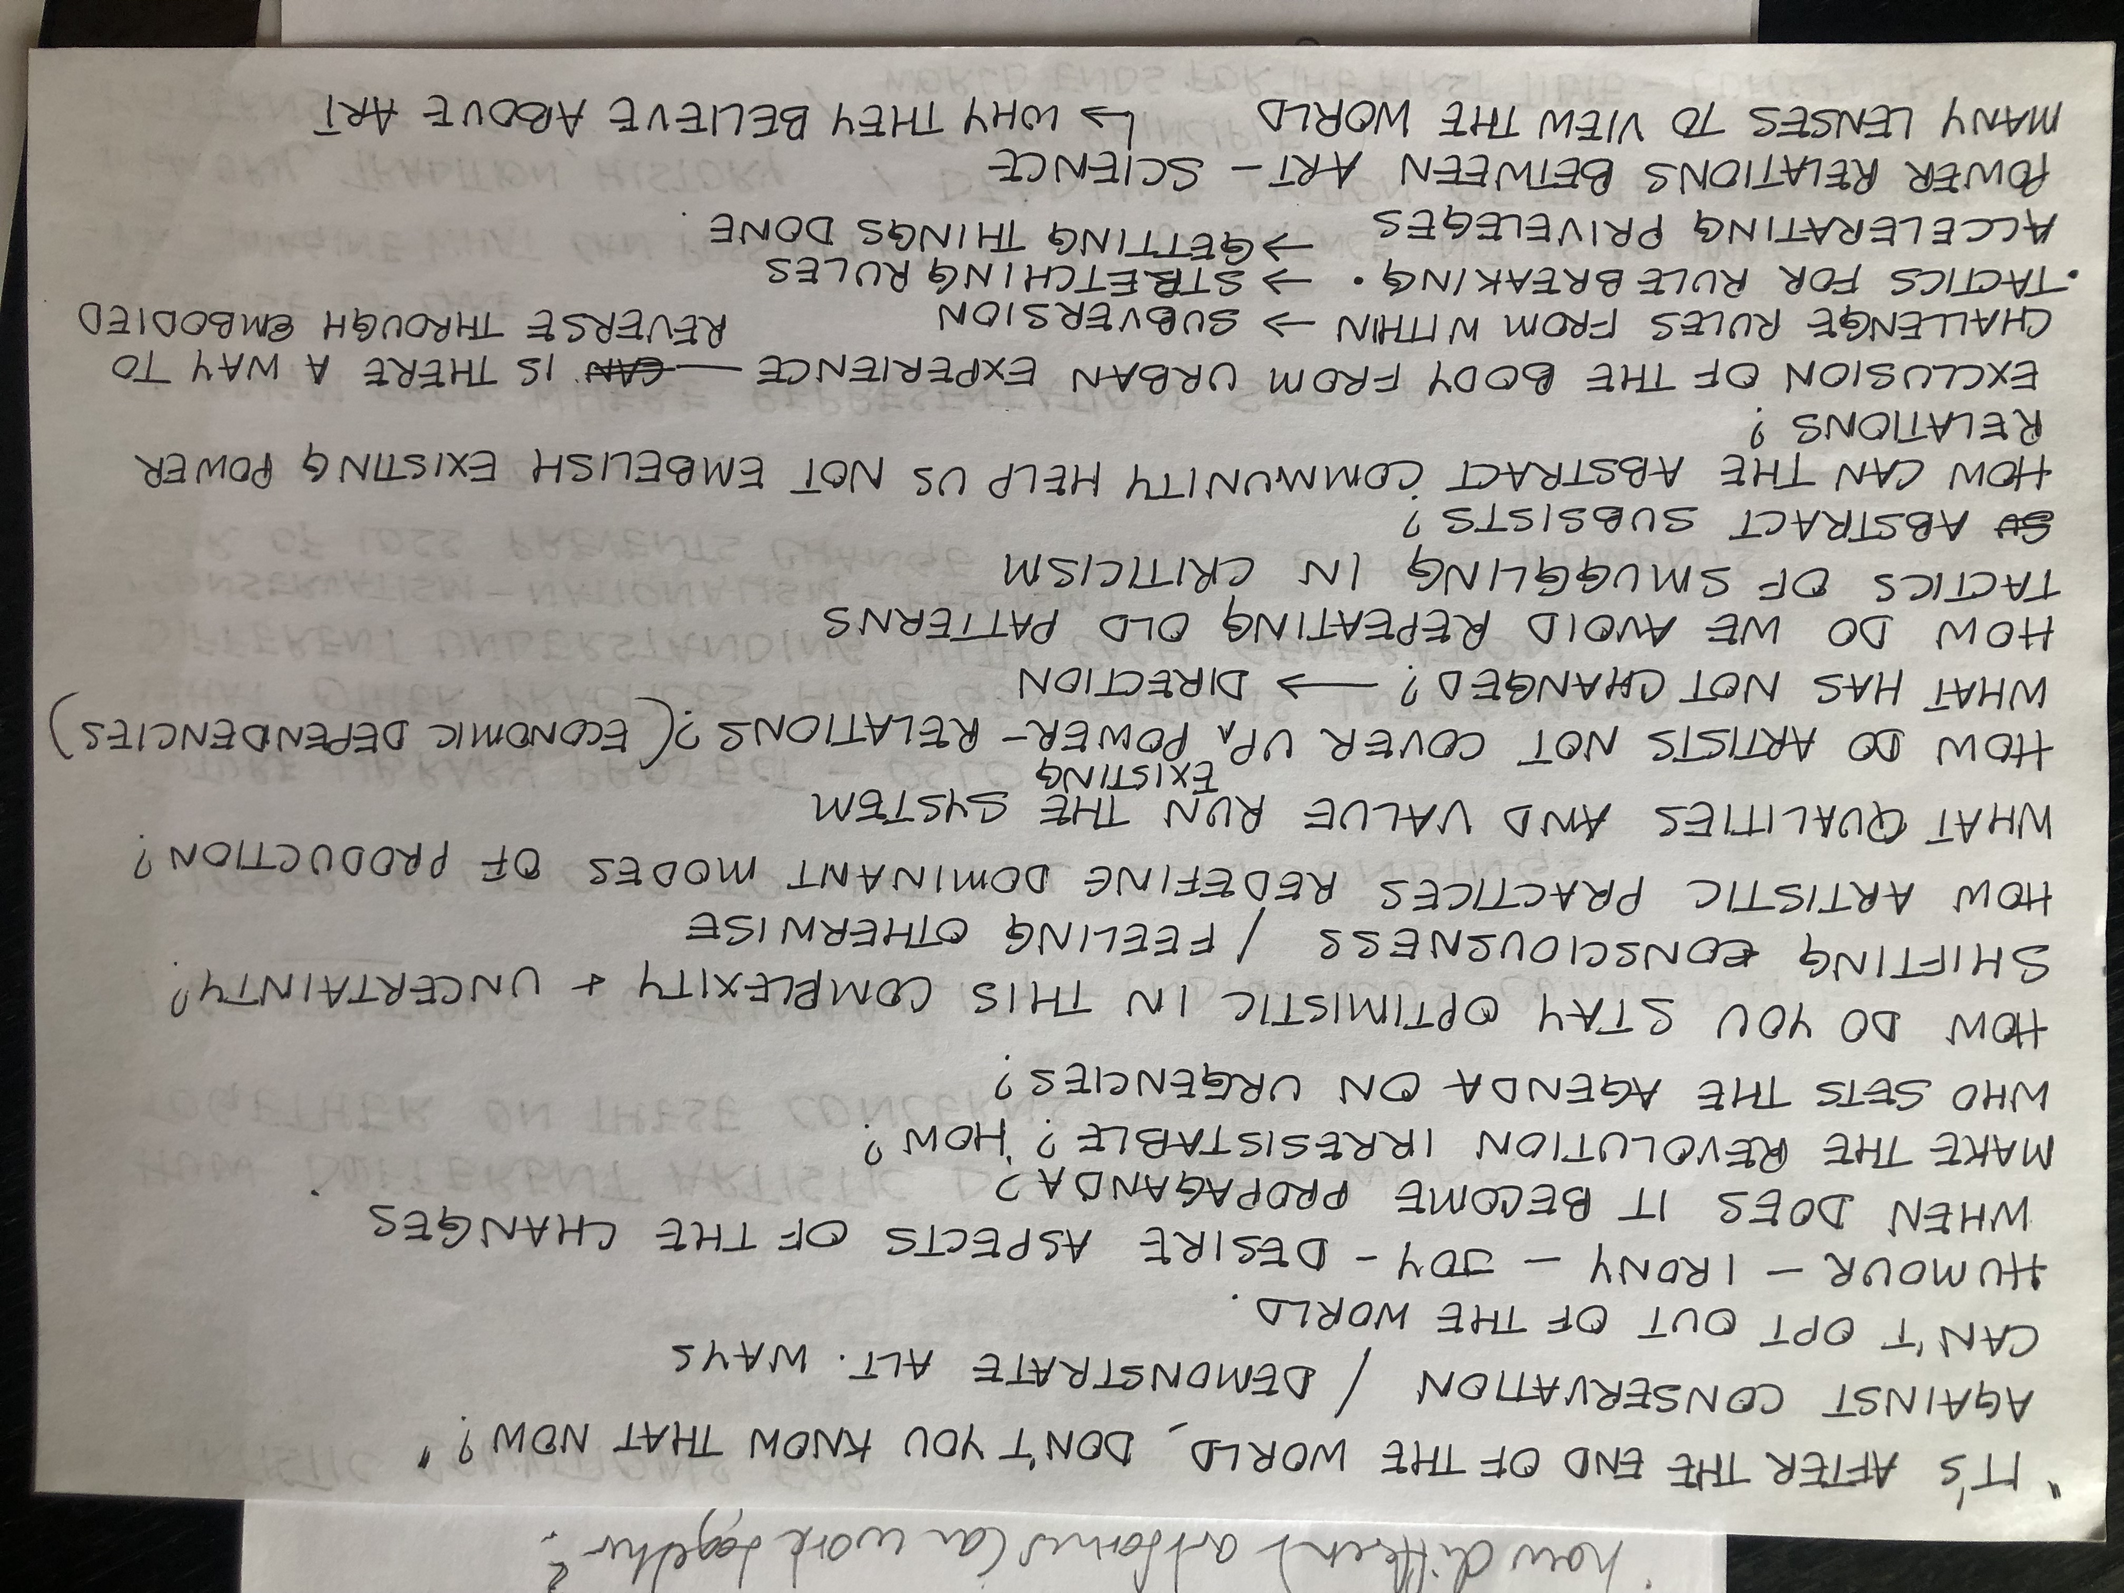 how different artforms can work together?
"IT'S AFTER THE END OF THE WORLD, DON'T YOU KNOW THAT NOW?"
AGAINST CONSERVATION / DEMONSTRATE ALT. WAYS
CAN'T OPT OUT OF THE WORLD.
HUMOUR - IRONY - JOY - DESIRE ASPECTS OF THE CHANGES
WHEN DOES IT BECOME PROPAGANDA?
MAKE THE REVOLUTION IRRESISTABLE? HOW?
WHO SETS THE AGENDA ON URGENCIES?
HOW DO YOU STAY OPTIMISTIC IN THIS COMPLEXITY + UNCERTAINTY?
SHIFTING CONSCIOUSNESS / FEELING OTHERWISE
HOW ARTISTIC PRACTICES REDEFINE DOMINANT MODES OF PRODUCTION?
WHAT QUALITIES AND VALUE RUN THE SYSTEM
EXISTING
HOW DO ARTISTS NOT COVER UP POWER-RELATIONS? (ECONOMIC DEPENDENCIES)
WHAT HAS NOT CHANGED? → DIRECTION
HOW DO WE AVOID REPEATING OLD PATTERNS
TACTICS OF SMUGGLING IN CRITICISM
SU ABSTRACT SUBSISTS?
HOW CAN THE ABSTRACT COMMUNITY HELP US NOT EMBELISH EXISTING POWER
RELATIONS?
EXCLUSION OF THE BODY FROM URBAN EXPERIENCE — CAN IS THERE A WAY TO
REVERSE THROUGH EMBODIED
CHALLENGE RULES FROM WITHIN → SUBVERSION
• TACTICS FOR RULEBREAKING • → STRETCHING RULES
→ GETTING THINGS DONE
ACCELERATING PRIVELEGES
POWER RELATIONS BETWEEN ART - SCIENCE
MANY LENSES TO VIEW THE WORLD ↳ WHY THEY BELIEVE ABOVE ART